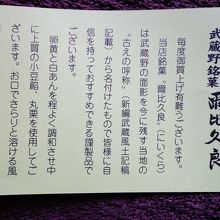 武蔵野銘菓 爾比久良
毎度御買上げ有難うございます。
当店銘菓“爾比久良”（にいくら）
は武蔵野の面影を今に残す当地の
“古えの呼称”（新編武蔵風土記稿
記載）から名付けたもので皆様に自
信を持っておすすめできる謹製品で
ございます。
卵黄と白あんを程よく調和させ中
に上質の小豆餡、丸栗を使用してご
ざいます。お口でさらりと溶ける風